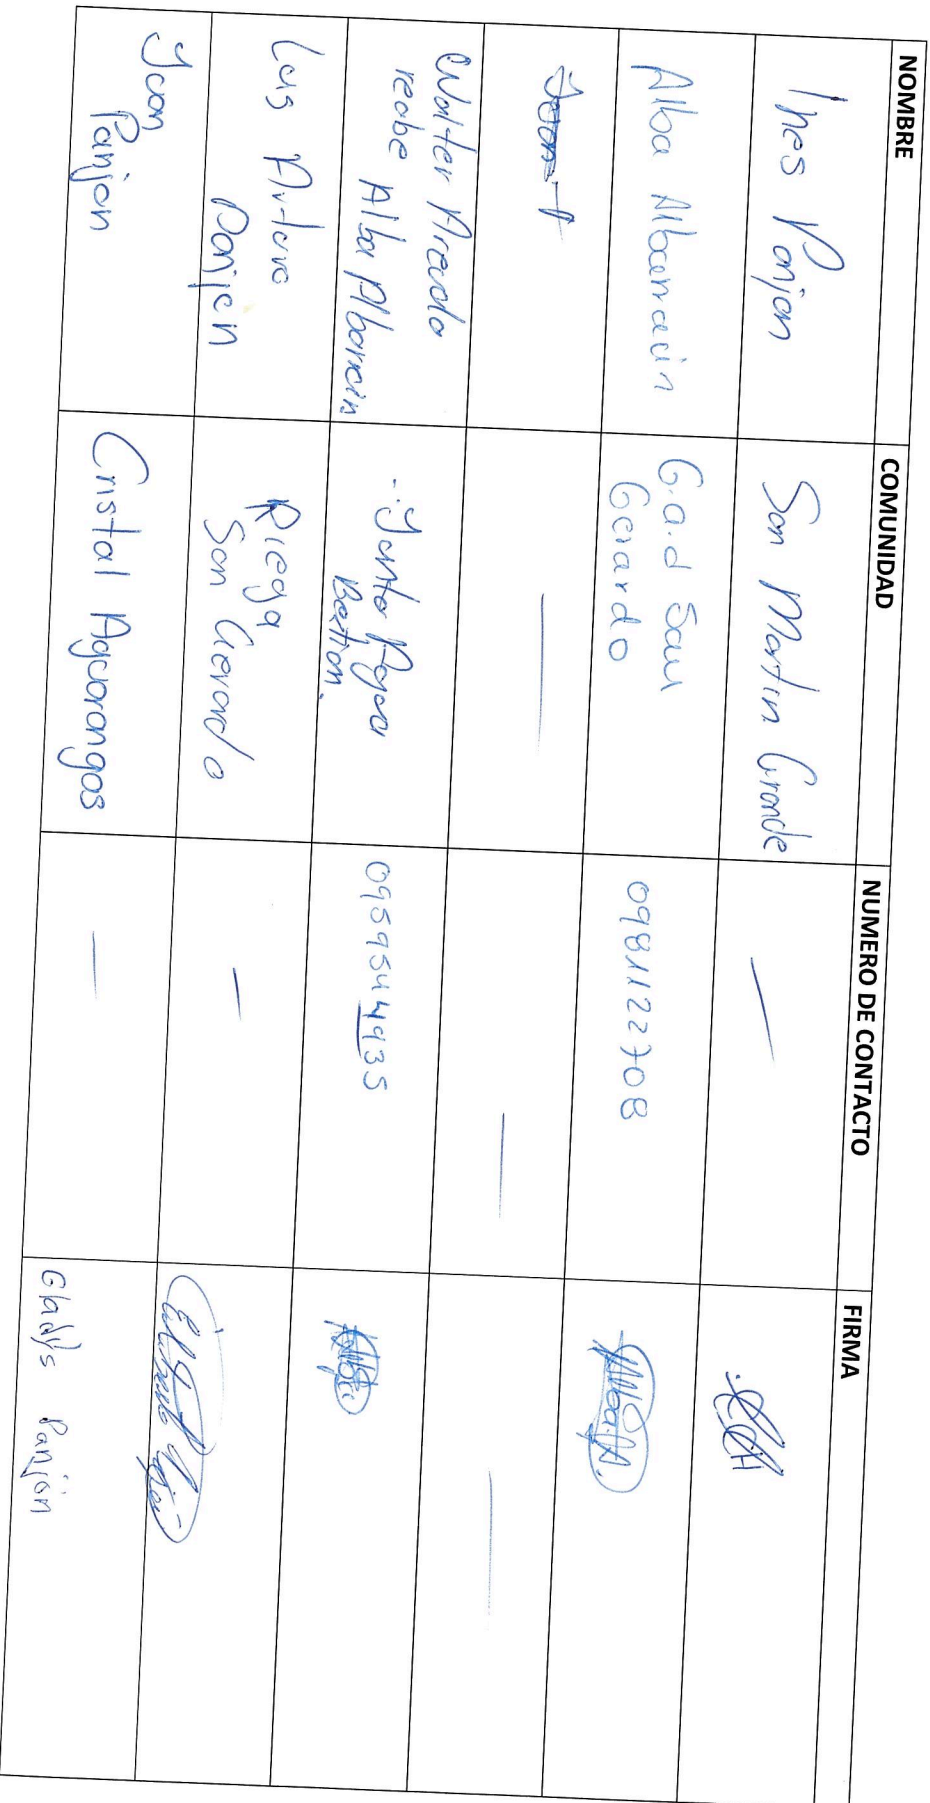 NOMBRE COMUNIDAD NUMERO DE CONTACTO FIRMA
Ines Panjon San Martin Grande —
Alba Albarracin G.a.d San Gerardo 0981122708 Alba A.
— — —
Walter Arevalo
recibe Alba Albarracin Junta 0959544935
Luis Arturo
Panjon Riega
San Gerardo —
Juan
Panjon Cristal Aguarongos — Gladys Panjón